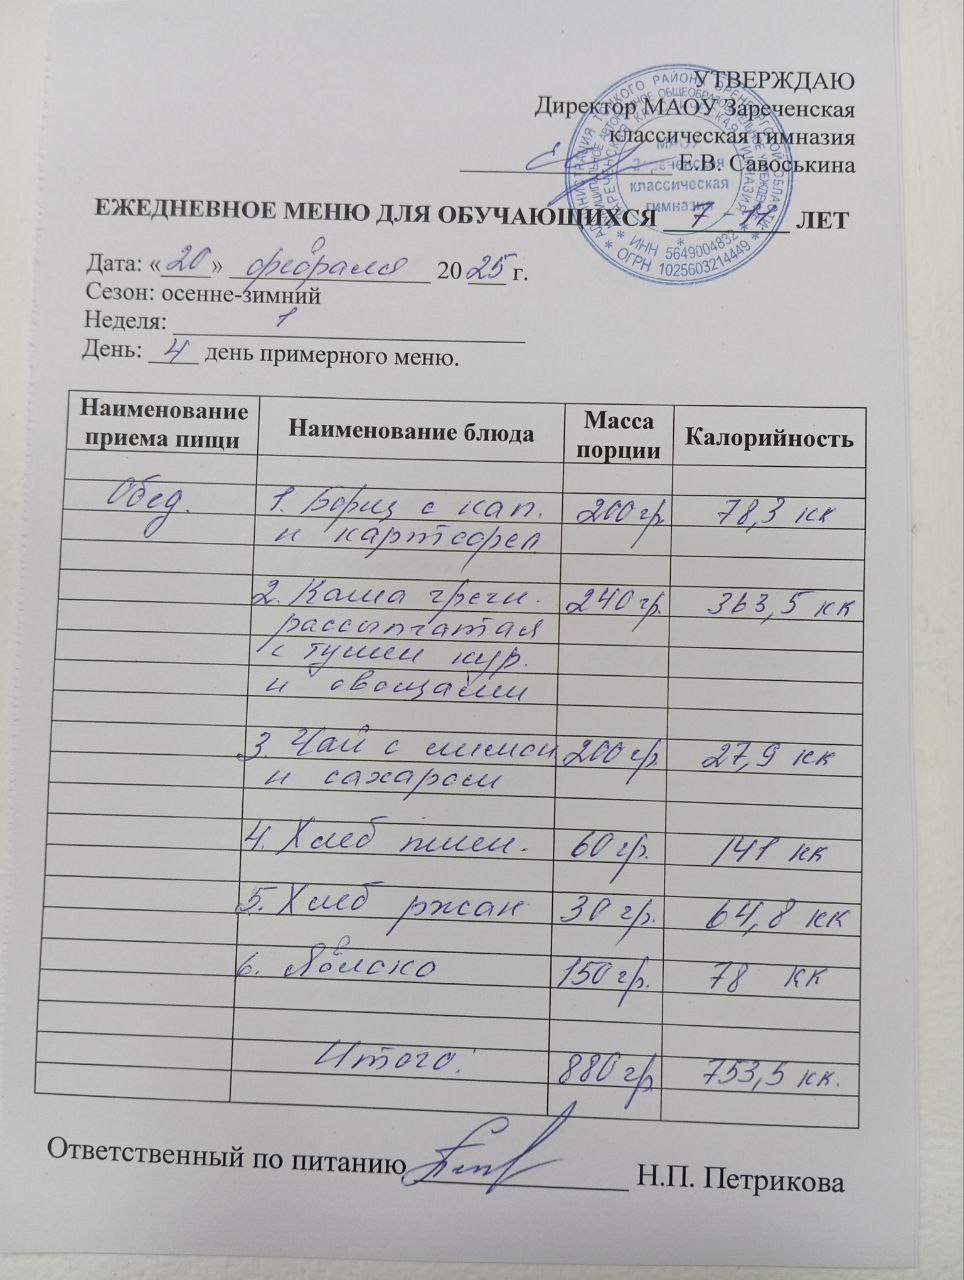 УТВЕРЖДАЮ
Директор МАОУ Зареченская
классическая гимназия
Е.В. Савоськина
МАОУ
Зареченская
классическая
гимназия
* ИНН 5649004832 *
* ОГРН 1025603214449 *
ЕЖЕДНЕВНОЕ МЕНЮ ДЛЯ ОБУЧАЮЩИХСЯ 7 - 11 ЛЕТ
Дата: «20» февраля 2025 г.
Сезон: осенне-зимний
Неделя: 1
День: 4 день примерного меню.
Наименование приема пищи Наименование блюда Масса порции Калорийность
Обед. 1. Борщ с кап. 200 гр. 78,3 кк
и картофел
2. Каша гречн. 240 гр. 363,5 кк
рассыпчатая
с тушен кур.
и овощами
3. Чай с лимон 200 гр. 27,9 кк
и сахаром
4. Хлеб пшен. 60 гр. 141 кк
5. Хлеб ржан 30 гр. 64,8 кк
6. Яблоко 150 гр. 78 кк
Итого: 880 гр 753,5 кк.
Ответственный по питанию Н.П. Петрикова